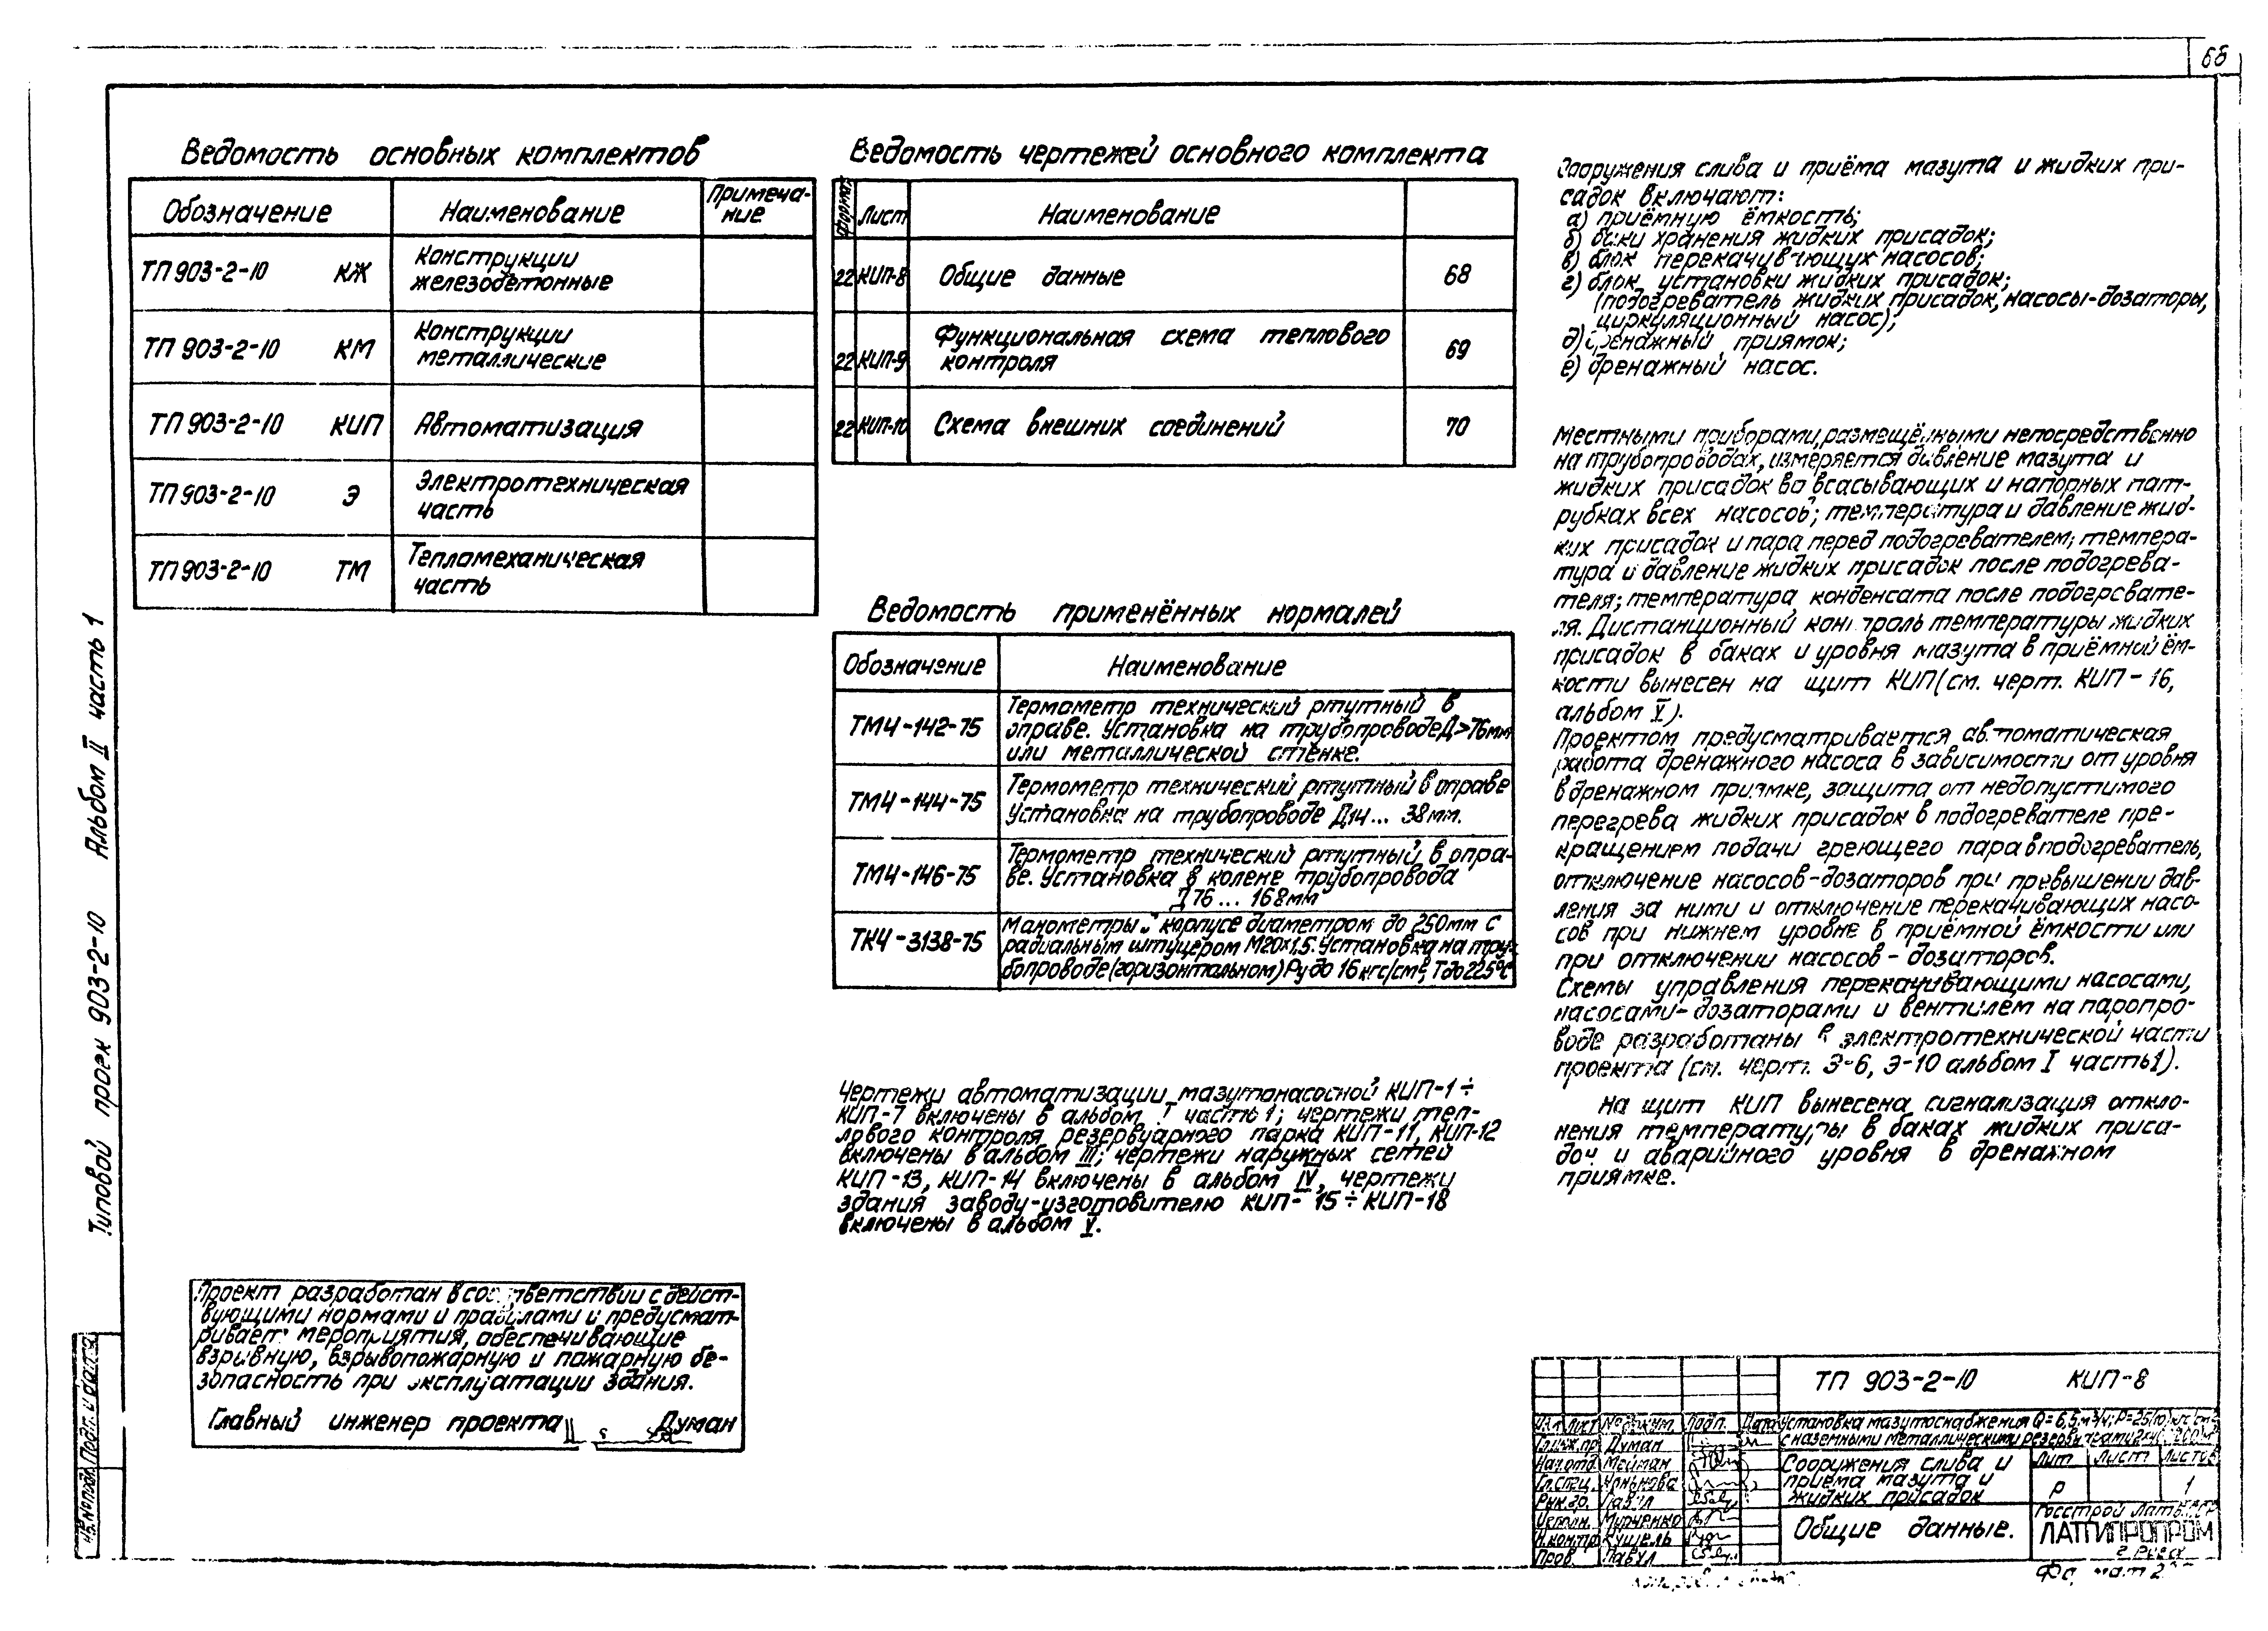 68
Ведомость основных комплектов
Обозначение Наименование Примеча-
ние
ТП 903-2-10 КЖ Конструкции
железобетонные
ТП 903-2-10 КМ Конструкции
металлические
ТП 903-2-10 КИП Автоматизация
ТП 903-2-10 Э Электротехническая
часть
ТП 903-2-10 ТМ Тепломеханическая
часть
Ведомость чертежей основного комплекта
Формат Лист Наименование
22 КИП-8 Общие данные 68
22 КИП-9 Функциональная схема теплового
контроля 69
22 КИП-10 Схема внешних соединений 70
Ведомость применённых нормалей
Обозначение Наименование
ТМ4-142-75 Термометр технический ртутный в
оправе. Установка на трубопроводе Д>76мм
или металлической стенке.
ТМ4-144-75 Термометр технический ртутный в оправе
Установка на трубопроводе Д14... 38мм.
ТМ4-146-75 Термометр технический ртутный в опра-
ве. Установка в колене трубопровода
Д76... 168мм
ТК4-3138-75 Манометры в корпусе диаметром до 250мм с
радиальным штуцером М20×1,5. Установка на тру-
бопроводе (горизонтальном) Ру до 16 кгс/см², Т до 225°С
Чертежи автоматизации мазутонасосной КИП-1÷
КИП-7 включены в альбом I часть 1; чертежи теп-
лового контроля резервуарного парка КИП-11, КИП-12
включены в альбом III; чертежи наружных сетей
КИП-13, КИП-14 включены в альбом IV, чертежи
здания заводу-изготовителю КИП-15÷КИП-18
включены в альбом V.
Сооружения слива и приёма мазута и жидких при-
садок включают:
а) приёмную ёмкость;
б) баки хранения жидких присадок;
в) блок перекачивающих насосов;
г) блок установки жидких присадок;
(подогреватель жидких присадок, насосы-дозаторы,
циркуляционный насос);
д) дренажный приямок;
е) дренажный насос.
Местными приборами, размещёнными непосредственно
на трубопроводах, измеряется давление мазута и
жидких присадок во всасывающих и напорных пат-
рубках всех насосов; температура и давление жид-
ких присадок и пара перед подогревателем; темпера-
тура и давление жидких присадок после подогрева-
теля; температура конденсата после подогревате-
ля. Дистанционный контроль температуры жидких
присадок в баках и уровня мазута в приёмной ём-
кости вынесен на щит КИП (см. черт. КИП-16,
альбом V).
Проектом предусматривается автоматическая
работа дренажного насоса в зависимости от уровня
в дренажном приямке, защита от недопустимого
перегрева жидких присадок в подогревателе пре-
кращением подачи греющего пара в подогреватель,
отключение насосов-дозаторов при превышении дав-
ления за ними и отключение перекачивающих насо-
сов при нижнем уровне в приёмной ёмкости или
при отключении насосов-дозаторов.
Схемы управления перекачивающими насосами,
насосами-дозаторами и вентилем на паропро-
воде разработаны в электротехнической части
проекта (см. черт. Э-6, Э-10 альбом I часть 1).
На щит КИП вынесена сигнализация откло-
нения температуры в баках жидких приса-
док и аварийного уровня в дренажном
приямке.
Типовой проек 903-2-10 Альбом II часть 1
Проект разработан в соответствии с дейст-
вующими нормами и правилами и предусмат-
ривает мероприятия, обеспечивающие
взрывную, взрывопожарную и пожарную бе-
зопасность при эксплуатации здания.
Главный инженер проекта Думан
Инв.№ подл. Подп. и дата
ТП 903-2-10 КИП-8
Изм. Лист № докум. Подп. Дата
Установка мазутоснабжения Q=6,5м³/ч; Р=25
с наземными металлическими
Гл.инж.пр Думан
Нач.отд. Мейман
Гл.спец.
Рук.гр. Павул
Исполн.
Н.контр. Кушель
Пров. Павул
Сооружения слива и
приёма мазута и
жидких присадок
Лит. Лист Листов
Р 1
Общие данные.
Госстрой Латв.ССР
ЛАТГИПРОПРОМ
г. Рига
Формат